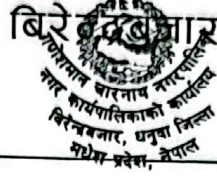 बिरेन्द्रबजार
गणेशमान चारनाथ नगरपालिका
नगर कार्यपालिकाको कार्यालय
बिरेन्द्रबजार, धनुषा जिल्ला
मधेश प्रदेश, नेपाल